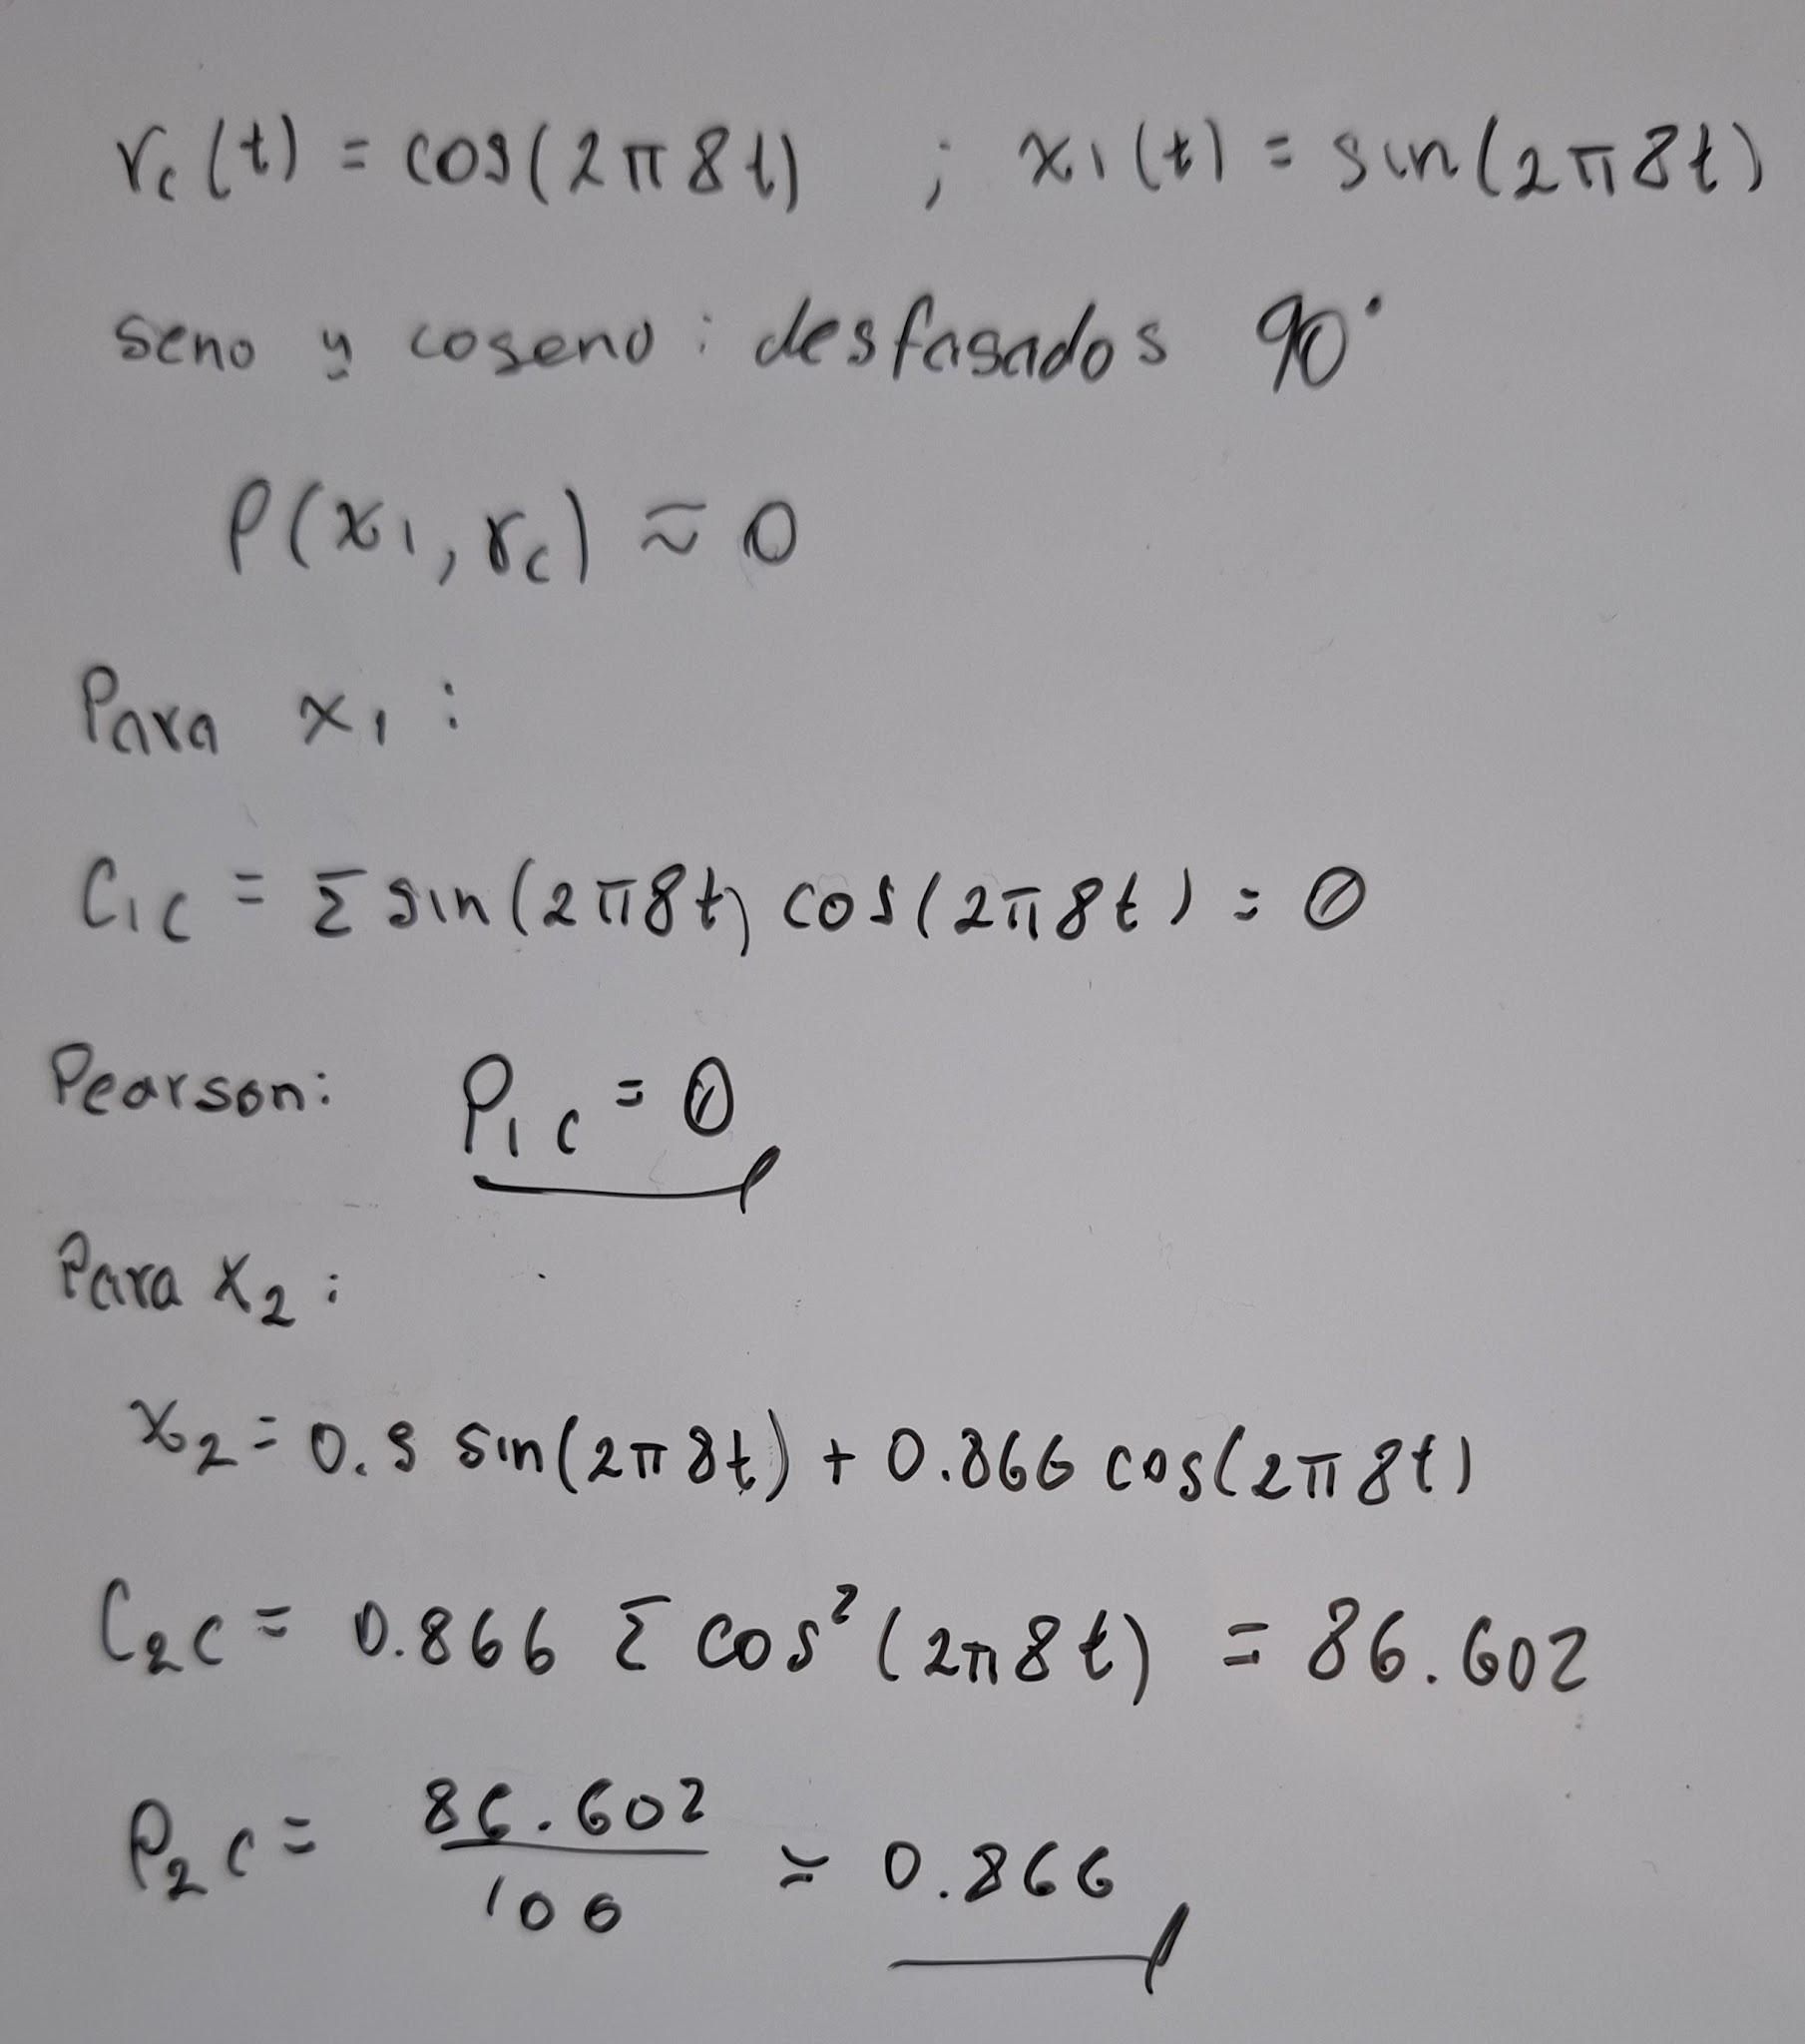 rc(t) = cos(2π8t) ; x1(t) = sin(2π8t)
seno y coseno : desfasados 90°
ρ(x1, rc) ≈ 0
Para x1 :
C1c = Σ sin(2π8t) cos(2π8t) = 0
Pearson: ρ1c = 0
Para x2 :
x2 = 0.5 sin(2π8t) + 0.866 cos(2π8t)
C2c = 0.866 Σ cos²(2π8t) = 86.602
ρ2c = 86.602 / 100 ≈ 0.866